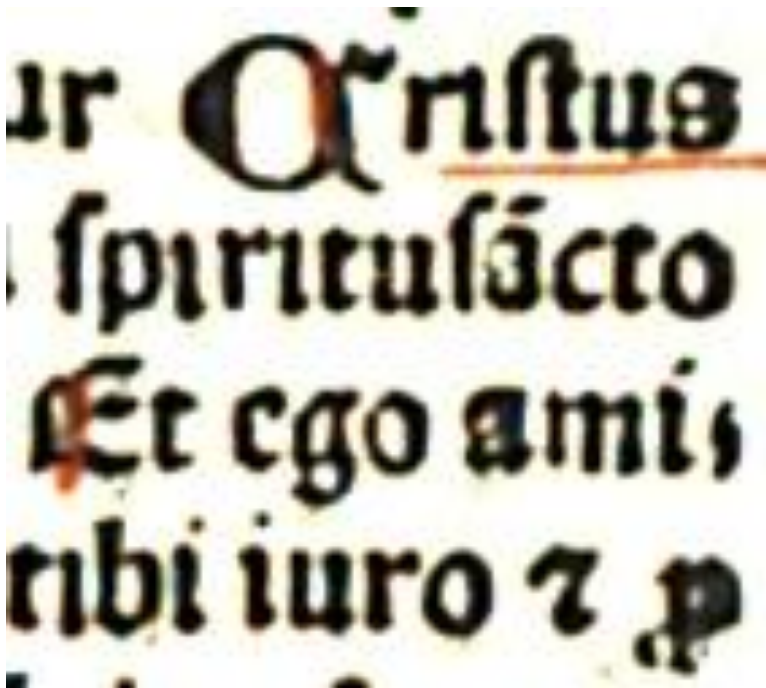 ur Cristus
ſpirituſācto
Et ego ami,
tibi iuro ⁊ ꝓ